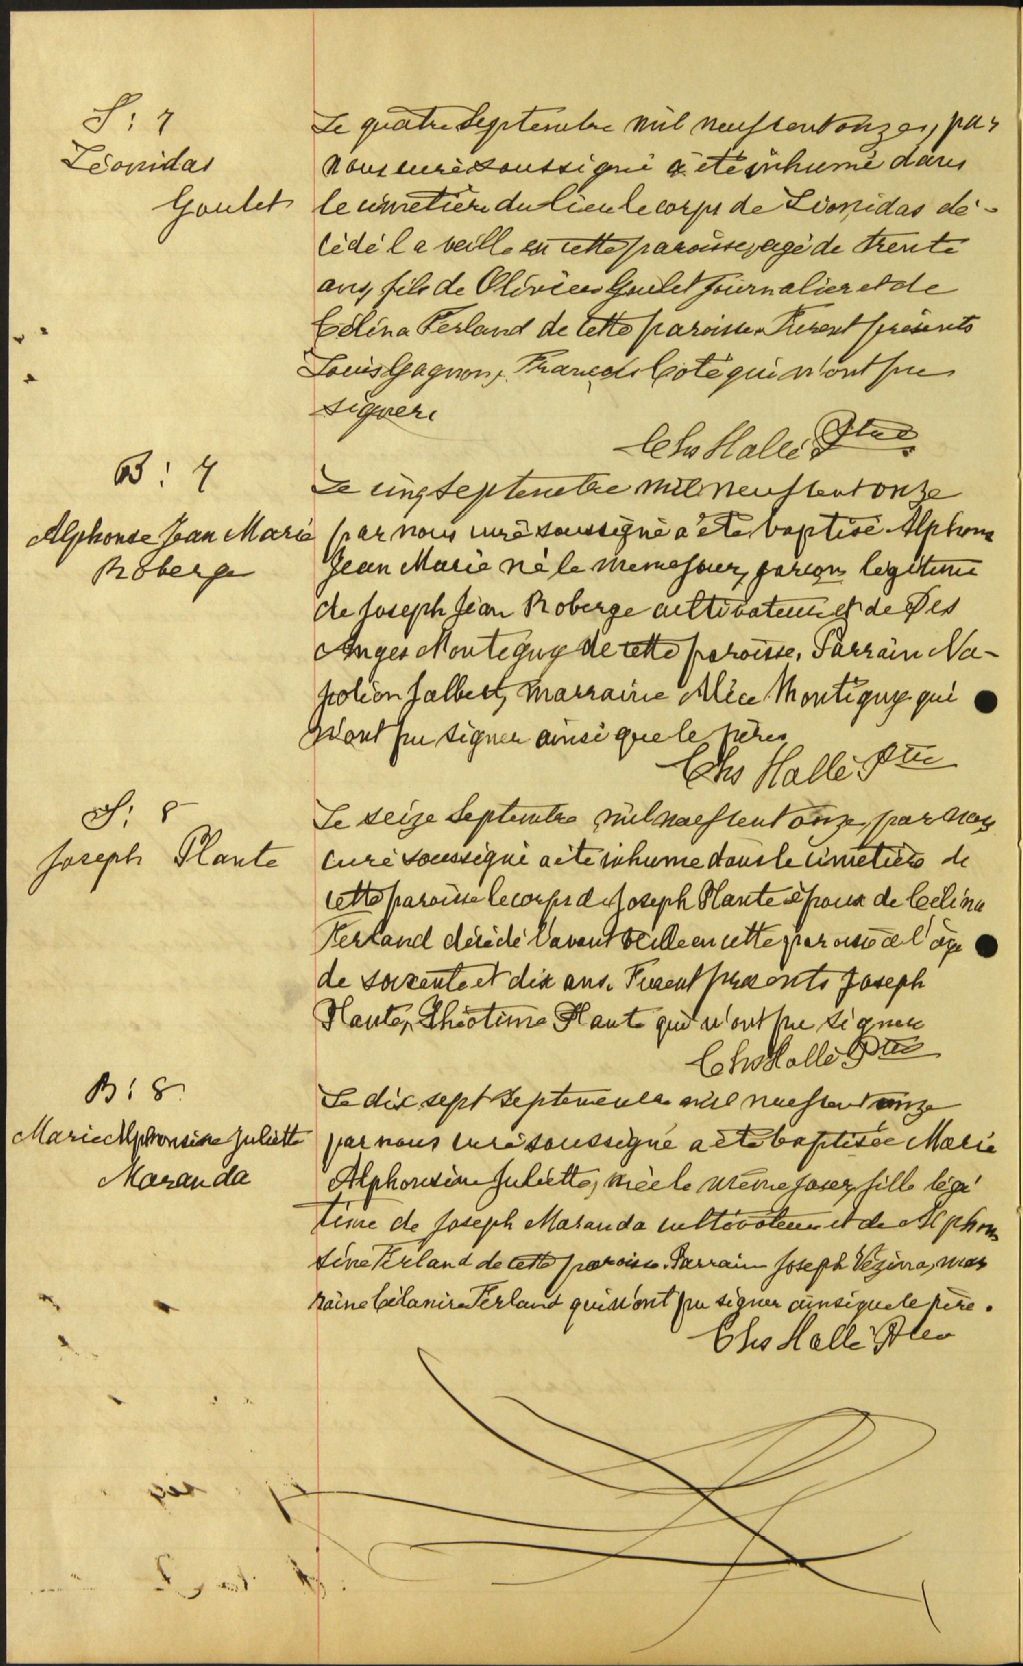 S: 7
Léonidas
Goulet
Le quatre Septembre mil neuf cent onze, par
nous curé soussigné a été inhumé dans
le cimetière du lieu le corps de Léonidas dé-
cédé la veille en cette paroisse, agé de trente
ans, fils de Olivier Goulet journalier et de
Célina Ferland de cette paroisse. Furent présents
Louis Gagnon, François Coté qui n'ont pu
signer.
Chs Hallé Ptre
B: 7
Alphonse Jean Marie
Roberge
Le cinq Septembre mil neuf cent onze
par nous curé soussigné a été baptisé Alphonse
Jean Marie né le meme jour, garçon légitime
de Joseph Jean Roberge cultivateur et de Des
Anges Montigny de cette paroisse. Parrain Na-
poléon Jalbert, marraine Alice Montigny qui
n'ont pu signer ainsi que le père.
Chs Hallé Ptre
S: 8
Joseph Plante
Le seize Septembre mil neuf cent onze, par nous
curé soussigné a été inhumé dans le cimetière de
cette paroisse le corps de Joseph Plante époux de Célina
Ferland décédé l'avant veille en cette paroisse à l'âge
de soixante et dix ans. Furent présents Joseph
Plante, Théotime Plante qui n'ont pu signer
Chs Hallé Ptre
B: 8
Marie Alphonsine Juliette
Maranda
Le dix sept Septembre mil neuf cent onze
par nous curé soussigné a été baptisée Marie
Alphonsine Juliette, née le même jour, fille légi
time de Joseph Maranda cultivateur et de Alphon
sine Ferland de cette paroisse. Parrain Joseph Vézina, mar
raine Célanire Ferland qui n'ont pu signer ainsi que le père.
Chs Hallé Ptre